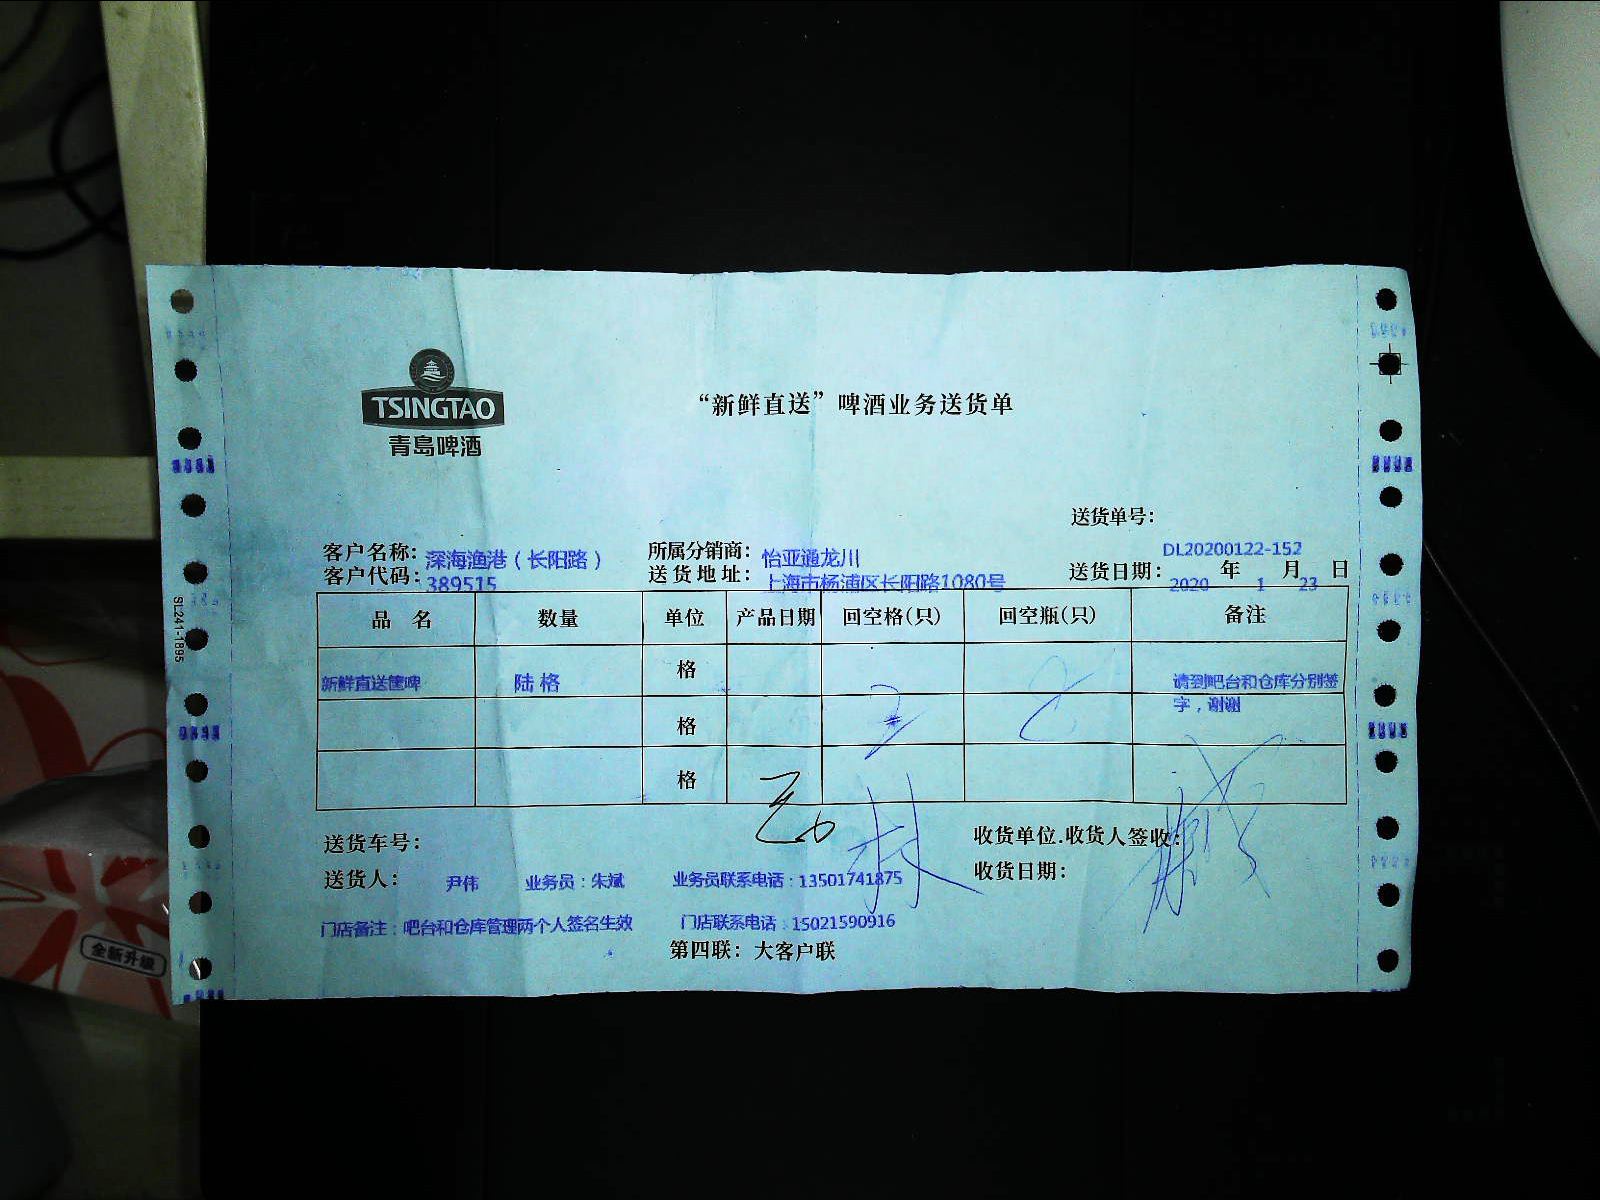 TSINGTAO
青岛啤酒
“新鲜直送”啤酒业务送货单
送货单号：
DL20200122-152
客户名称：深海渔港（长阳路） 所属分销商：怡亚通龙川
客户代码：389515 送货地址：上海市杨浦区长阳路1080号 送货日期：2020年1月23日
品名 数量 单位 产品日期 回空格(只) 回空瓶(只) 备注
新鲜直送篓啤 陆格 格 请到吧台和仓库分别签字，谢谢
格
格
送货车号： 收货单位.收货人签收：
送货人：尹伟 业务员：朱斌 业务员联系电话：13501741875 收货日期：
门店备注：吧台和仓库管理两个人签名生效 门店联系电话：15021590916
第四联：大客户联
SL241-1895
全新升级